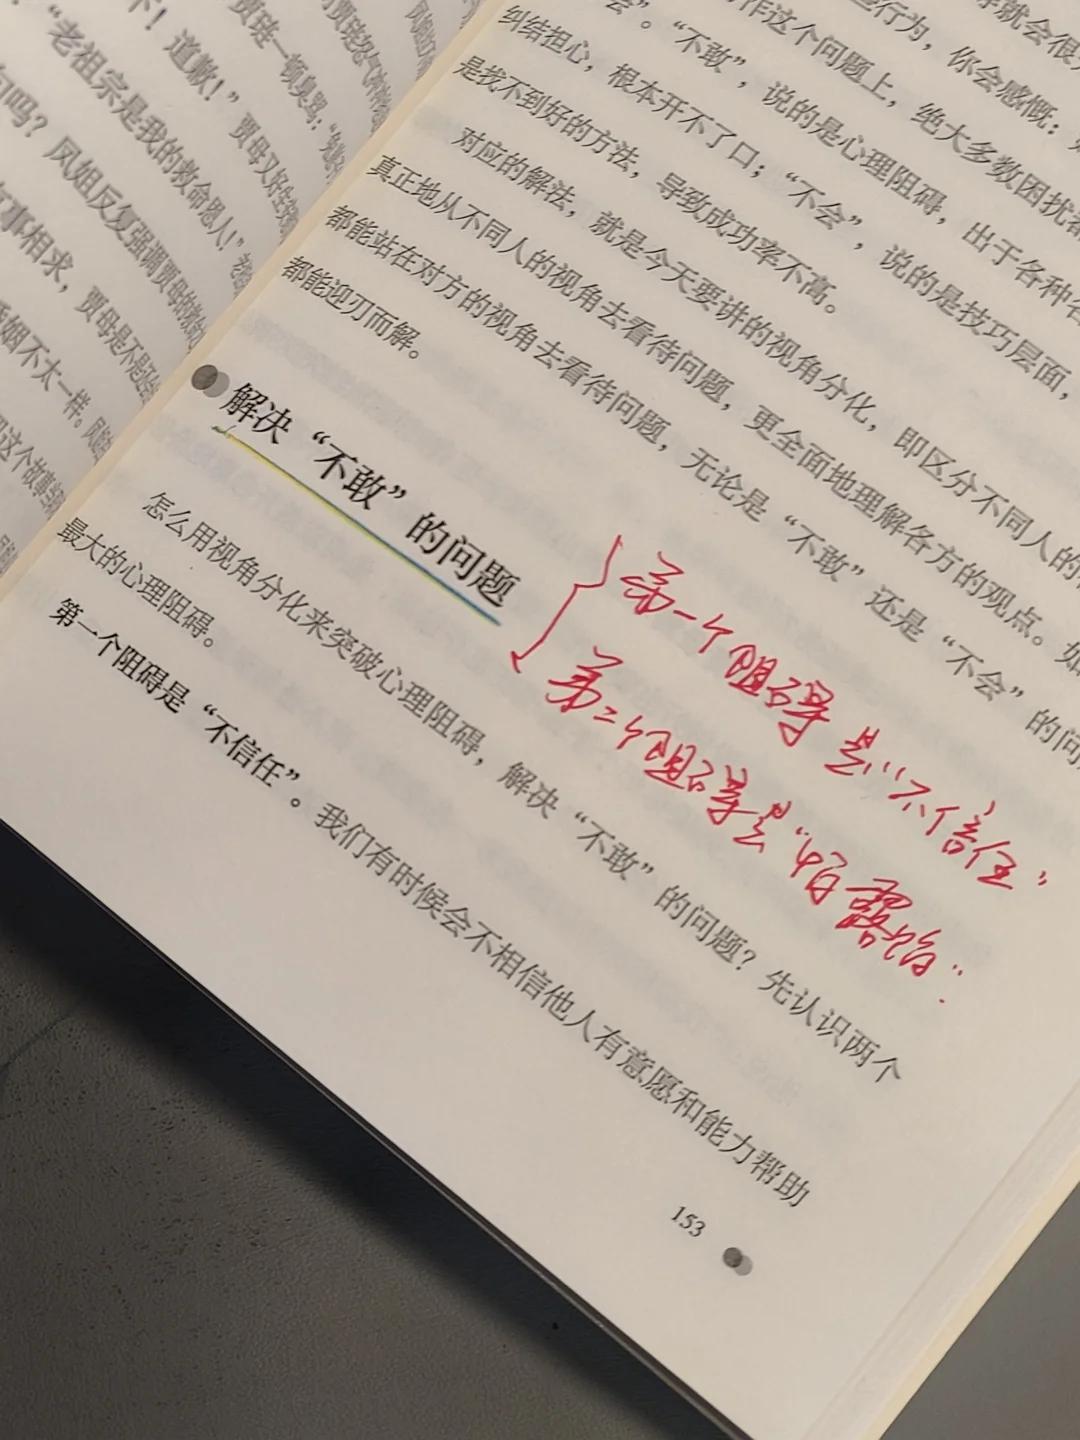 下！道歉！”贾母又好生
“老祖宗是我的救命恩人！”
吗？凤姐反复强调贾母的
事相求，贾母是不是
婚姻不太一样。
这个故事
贾琏一顿臭骂：
行为，你会感慨：
作这个问题上，绝大多数困扰都
会”。“不敢”，说的是心理阻碍，出于各种各
纠结担心，根本开不了口；“不会”，说的是技巧层面，
是找不到好的方法，导致成功率不高。
对应的解法，就是今天要讲的视角分化，即区分不同人的
真正地从不同人的视角去看待问题，更全面地理解各方的观点。如
都能站在对方的视角去看待问题，无论是“不敢”还是“不会”的问
都能迎刃而解。
解决“不敢”的问题
第一个阻碍是“不信任”
第二个阻碍是“怕露怯”
怎么用视角分化来突破心理阻碍，解决“不敢”的问题？先认识两个
最大的心理阻碍。
第一个阻碍是“不信任”。我们有时候会不相信他人有意愿和能力帮助
153